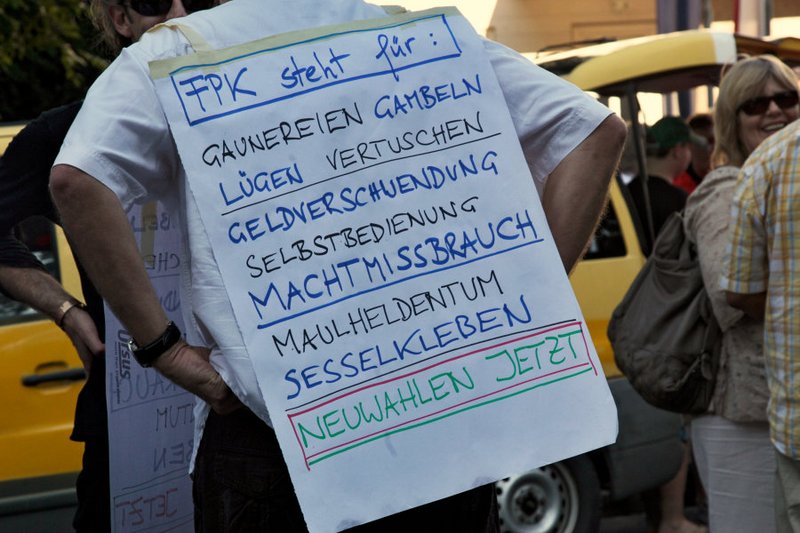 FPK steht für:
GAUNEREIEN GAMBELN
LÜGEN VERTUSCHEN
GELDVERSCHWENDUNG
SELBSTBEDIENUNG
MACHTMISSBRAUCH
MAULHELDENTUM
SESSELKLEBEN
NEUWAHLEN JETZT